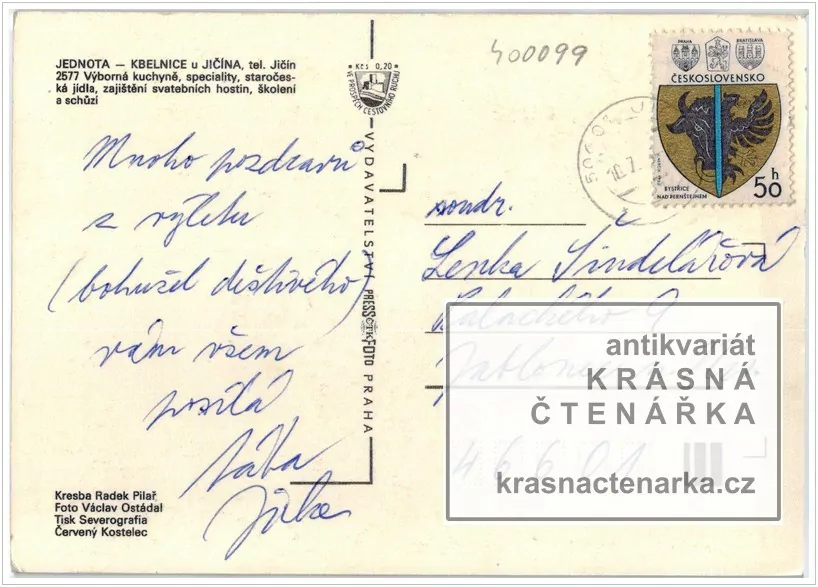 JEDNOTA — KBELNICE u JIČÍNA, tel. Jičín
2577 Výborná kuchyně, speciality, staročes-
ká jídla, zajištění svatebních hostin, školení
a schůzí
Kčs 0,20
VE PROSPĚCH CESTOVNÍHO RUCHU
400099
PRAHA
BRATISLAVA
ČESKOSLOVENSKO
BYSTŘICE
NAD PERNŠTEJNEM
50 h
Mnoho pozdravů
z výletu
(bohužel deštivého)
vám všem
posílá
Jirka
VYDAVATELSTVÍ PRESSFOTO PRAHA
ČTK
soudr.
Lenka Šindelářová
Palackého 9
46601
antikvariát
KRÁSNÁ
ČTENÁŘKA
krasnactenarka.cz
Kresba Radek Pilař
Foto Václav Ostádal
Tisk Severografia
Červený Kostelec